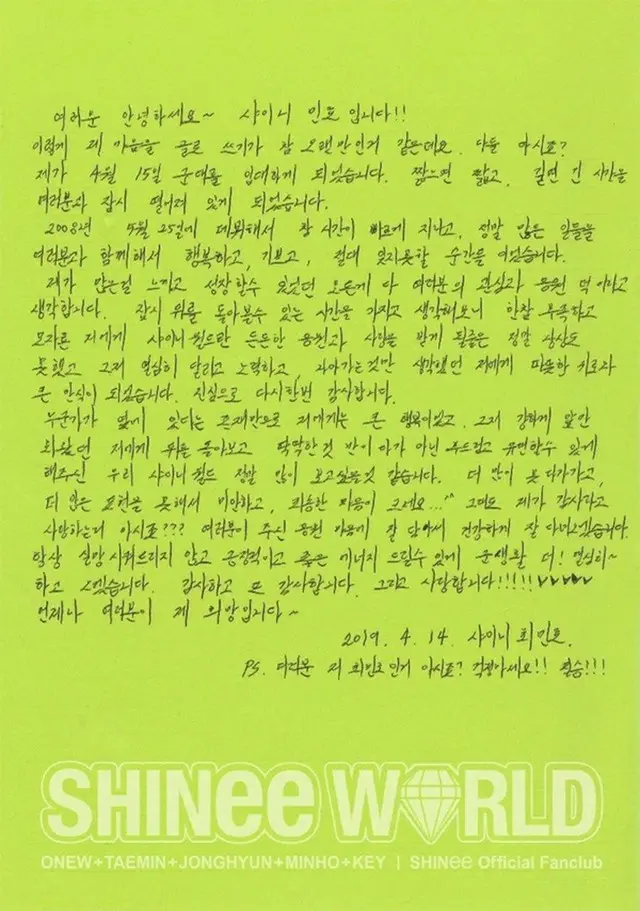 여러분 안녕하세요~ 샤이니 민호입니다!!
이렇게 제 마음을 글로 쓰기가 참 오랜만인거 같은데요. 다들 아시죠?
제가 4월 15일 군대를 입대하게 되었습니다. 짧으면 짧고, 길면 긴 시간을
여러분과 잠시 떨어져 있게 되었습니다.
2008년 5월 25일에 데뷔해서 참 시간이 빠르게 지나고, 정말 많은 일들을
여러분과 함께해서 행복하고, 기쁘고, 절대 잊지못할 순간들 이었습니다.
제가 많은걸 느끼고 성장할수 있었던 모든게 다 여러분의 관심과 응원 덕이라고
생각합니다. 잠시 뒤를 돌아볼수 있는 시간을 가지고 생각해보니 한참 부족하고
모자른 저에게 샤이니월드란 든든한 응원과 사랑을 받게 될줄은 정말 상상도
못했고 그저 열심히 달리고 노력하고, 나아가는것만 생각했던 저에게 따뜻한 위로와
큰 안식이 되었습니다. 진심으로 다시한번 감사합니다.
누군가가 옆에 있다는 존재만으로 저에게는 큰 행복이었고, 그저 강하게 앞만
봐왔던 저에게 뒤를 돌아보고 딱딱한것 만이 다가 아닌 부드럽고 유연할수 있게
해주신 우리 샤이니월드 정말 많이 보고싶을것 같습니다. 더 많이 못 다가가고,
더 많은 표현을 못해서 미안하고, 죄송한 마음이 크네요...^^ 그래도 제가 감사하고
사랑하는거 아시죠??? 여러분이 주신 응원 가슴에 잘 담아서 건강하게 잘 다녀오겠습니다.
항상 실망시켜드리지 않고 긍정적이고 좋은 에너지 드릴수 있게 군생활 더! 열심히~
하고 오겠습니다. 감사하고 또 감사합니다. 그리고 사랑합니다!!!!! ♥♥♥♥♥
언제나 여러분이 제 희망입니다~
2019. 4. 14. 샤이니 최민호.
PS. 여러분 저 최민호인거 아시죠? 걱정마세요!! 필승!!!
SHINee WORLD
ONEW+TAEMIN+JONGHYUN+MINHO+KEY | SHINee Official Fanclub